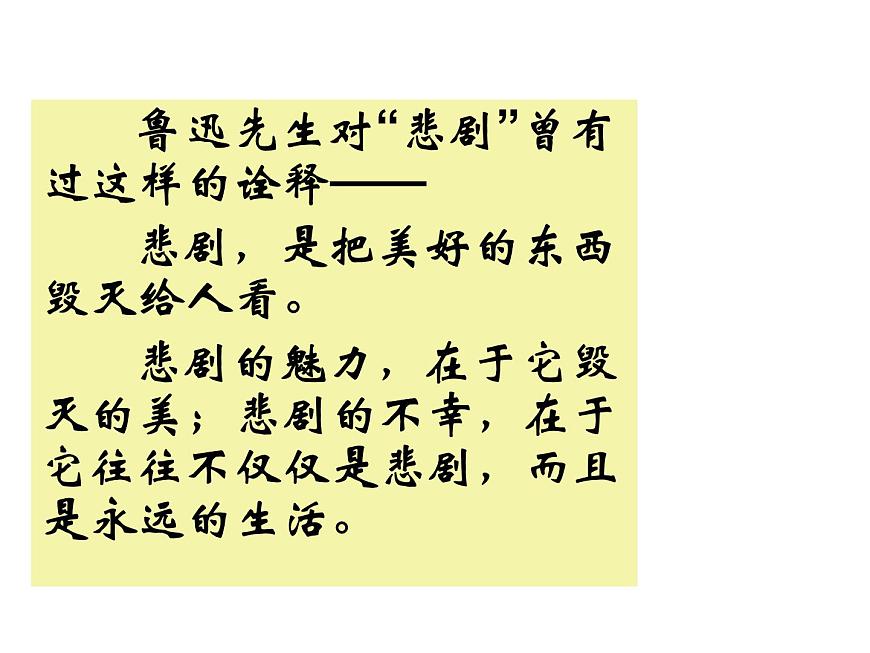 鲁迅先生对“悲剧”曾有
过这样的诠释——
悲剧，是把美好的东西
毁灭给人看。
悲剧的魅力，在于它毁
灭的美；悲剧的不幸，在于
它往往不仅仅是悲剧，而且
是永远的生活。